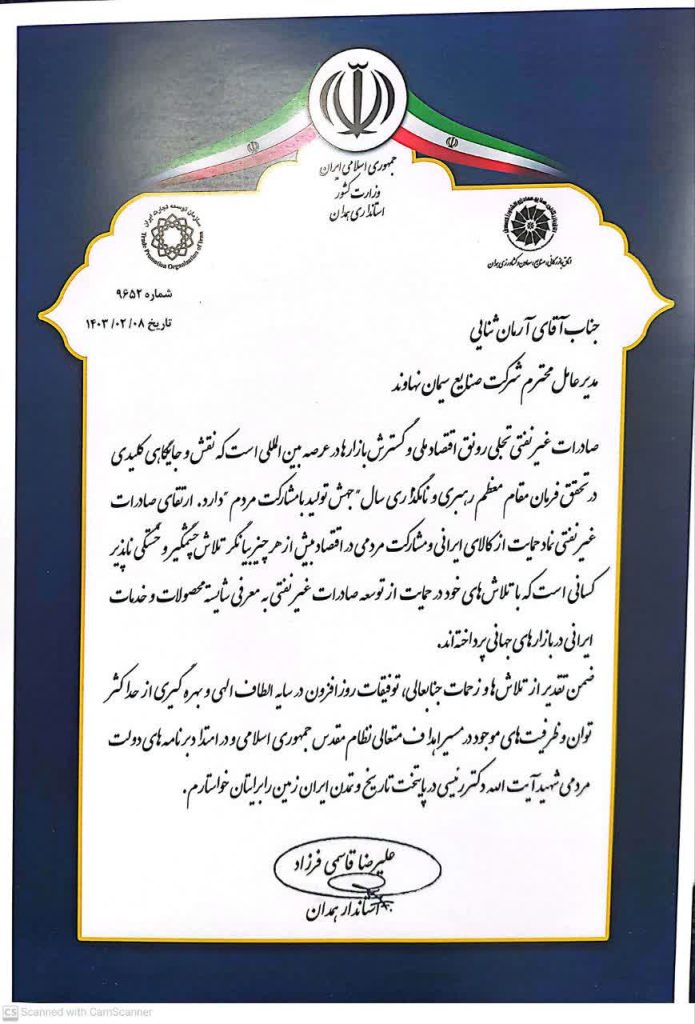 جمهوری اسلامی ایران
وزارت کشور
استانداری همدان
سازمان توسعه تجارت ایران
Trade Promotion Organization of Iran
اتاق بازرگانی، صنایع، معادن و کشاورزی همدان
شماره ۹۶۵۲
تاریخ ۱۴۰۳/۰۲/۰۸
جناب آقای آرمان ثنایی
مدیرعامل محترم شرکت صنایع سیمان نهاوند
صادرات غیرنفتی تجلی رونق اقتصاد ملی و گسترش بازارها در عرصه بین المللی است که نقش و جایگاهی کلیدی
در تحقق فرمان مقام معظم رهبری و نامگذاری سال "جهش تولید با مشارکت مردم" دارد. ارتقای صادرات
غیرنفتی نماد حمایت از کالای ایرانی و مشارکت مردمی در اقتصاد بیش از هر چیز بیانگر تلاش چشمگیر و خستگی ناپذیر
کسانی است که با تلاش های خود در حمایت از توسعه صادرات غیرنفتی به معرفی شایسته محصولات و خدمات
ایرانی در بازارهای جهانی پرداخته اند.
ضمن تقدیر از تلاش ها و زحمات جنابعالی، توفیقات روزافزون در سایه الطاف الهی و بهره گیری از حداکثر
توان و ظرفیت های موجود در مسیر اهداف متعالی نظام مقدس جمهوری اسلامی و در امتداد برنامه های دولت
مردمی شهید آیت الله دکتر رئیسی در پایتخت تاریخ و تمدن ایران زمین را برایتان خواستارم.
علیرضا قاسمی فرزاد
استاندار همدان
CS Scanned with CamScanner